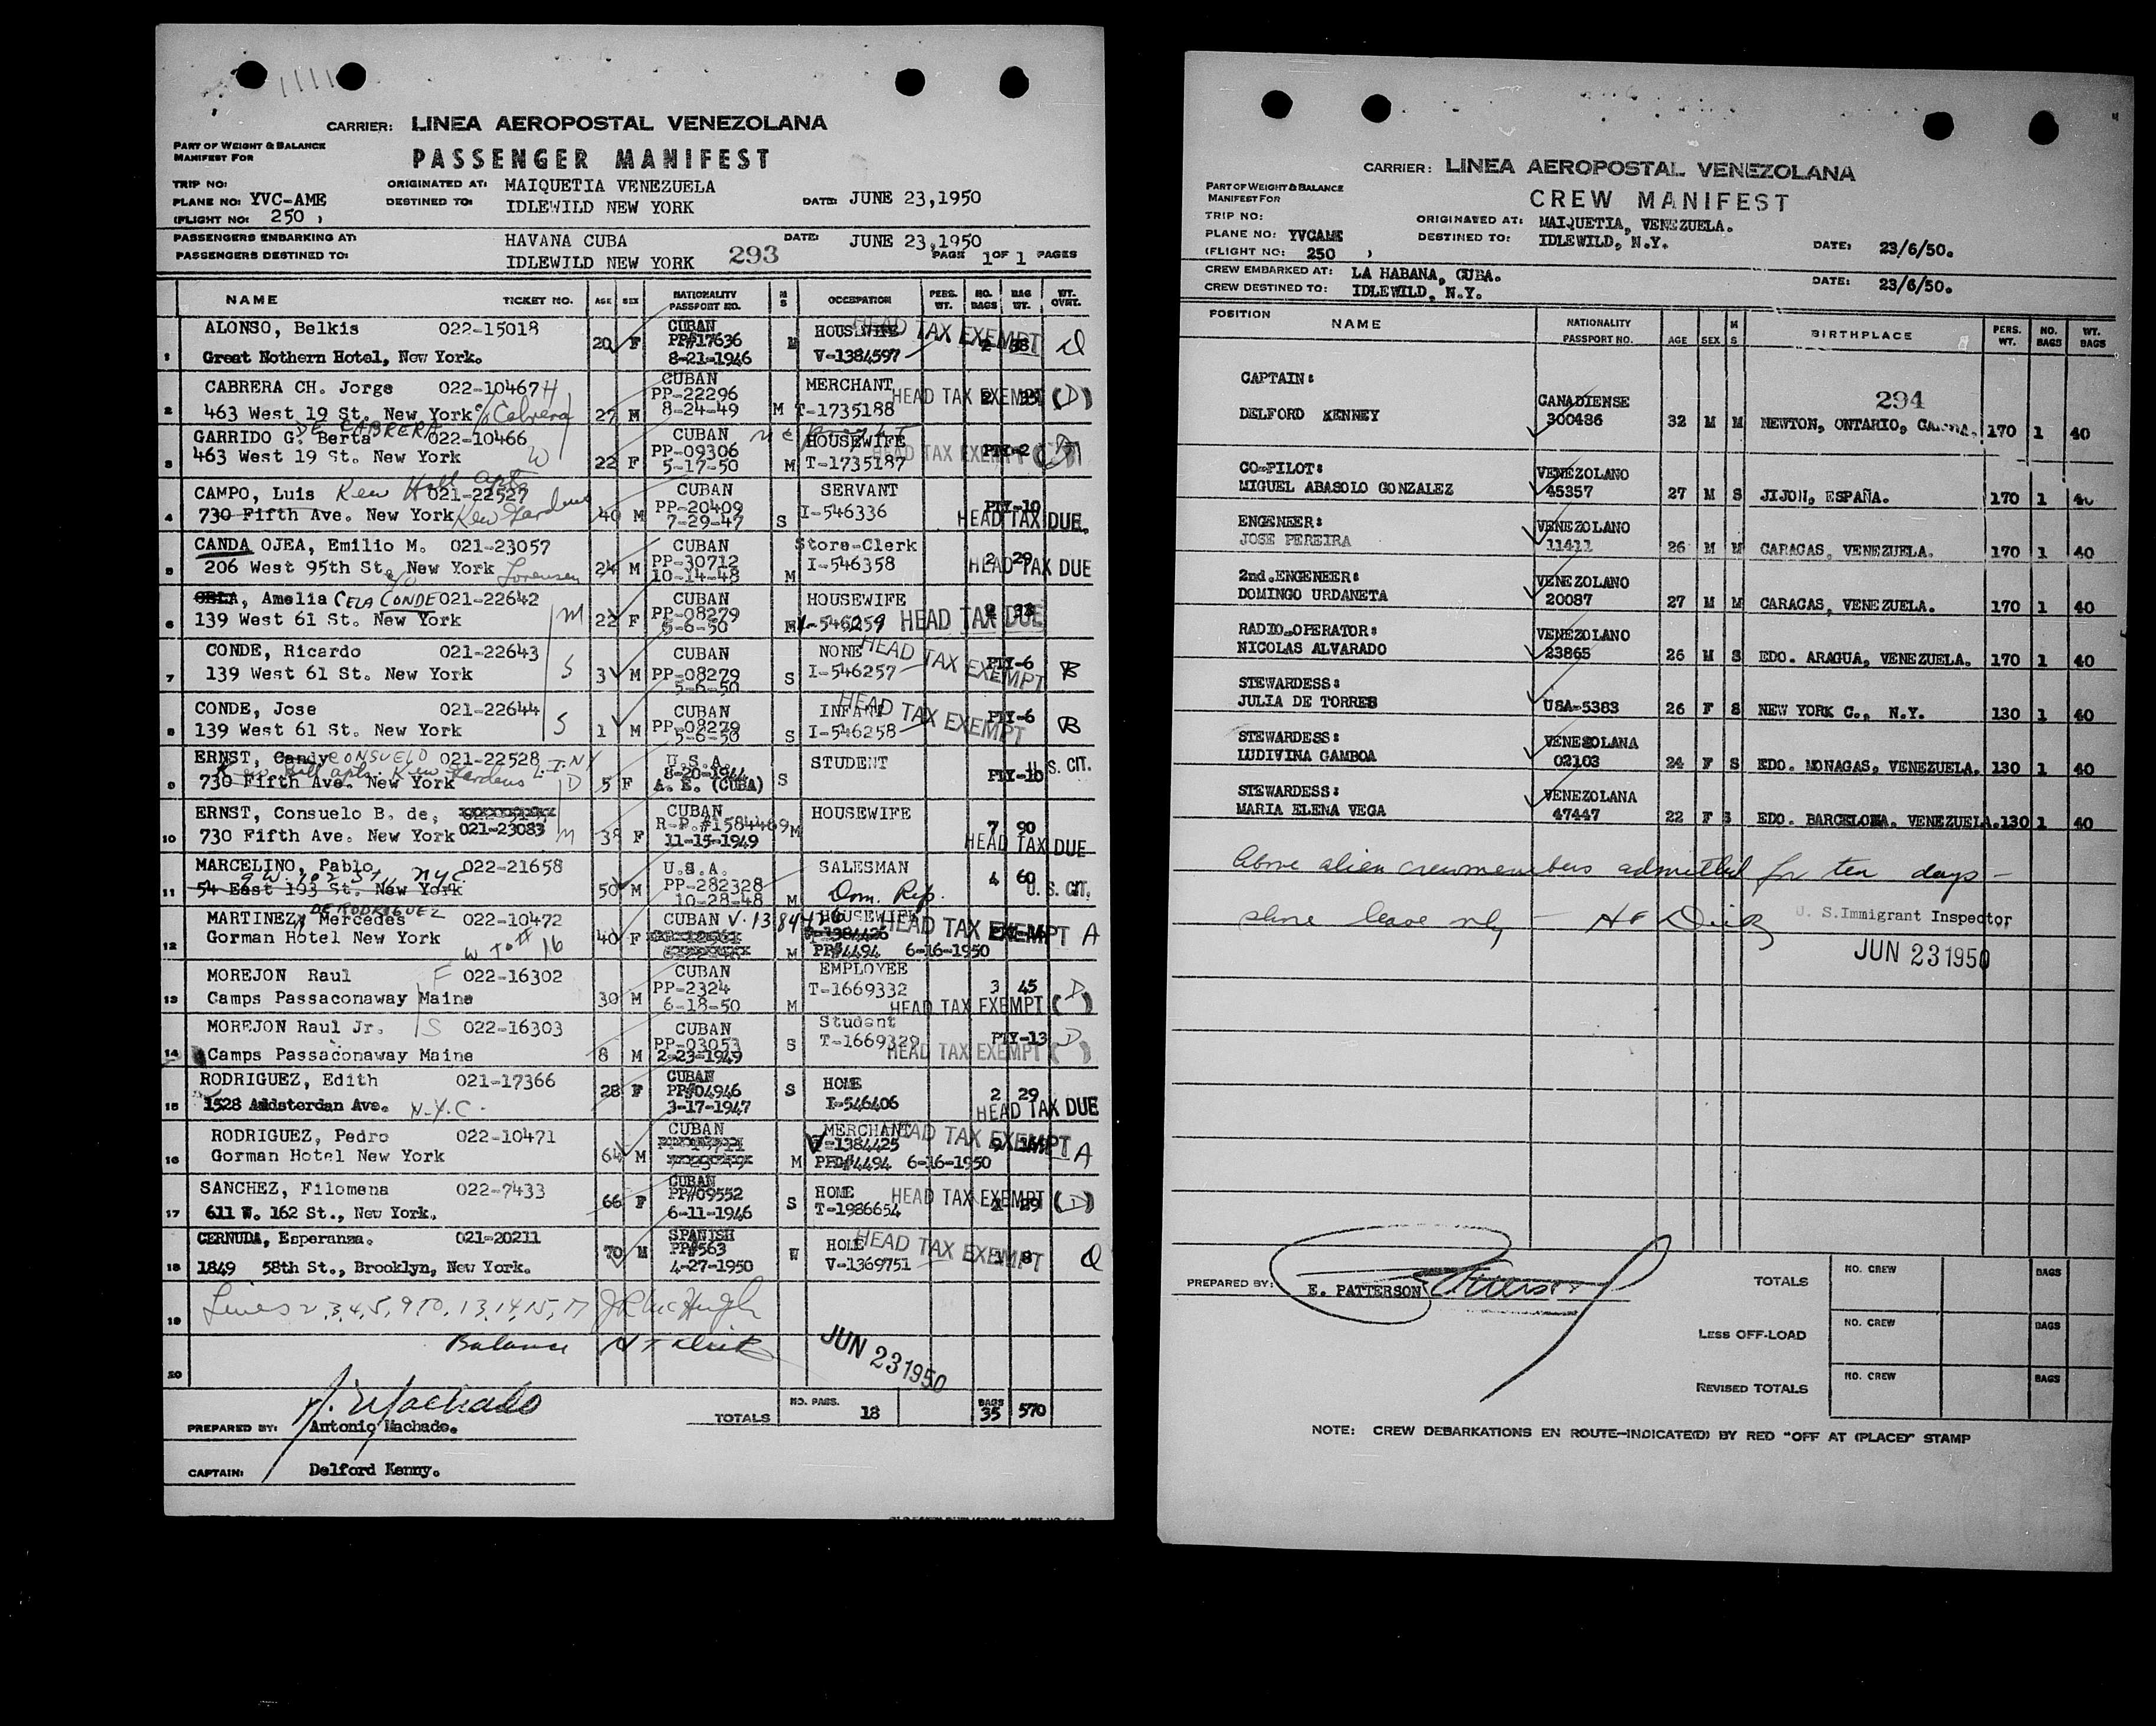 CARRIER: LINEA AEROPOSTAL VENEZOLANA
PART OF WEIGHT & BALANCE
MANIFEST FOR
PASSENGER MANIFEST
TRIP NO:
ORIGINATED AT: MAIQUETIA VENEZUELA
PLANE NO: YVC-AME
DESTINED TO: IDLEWILD NEW YORK
DATE: JUNE 23,1950
(FLIGHT NO: 250 )
PASSENGERS EMBARKING AT: HAVANA CUBA
DATE: JUNE 23,1950
PASSENGERS DESTINED TO: IDLEWILD NEW YORK 293 PAGE 1 OF 1 PAGES
NAME TICKET NO. AGE SEX NATIONALITY PASSPORT NO. M S OCCUPATION PERS. WT. NO. BAGS BAG WT. WT. OVRT.
ALONSO, Belkis 022-15018 CUBAN HOUSEWIFE HEAD TAX EXEMPT
20 F PP#17636 M 2 38 D
1 Great Nothern Hotel, New York. 8-21-1946 V-1384597
CABRERA CH. Jorge 022-10467 H CUBAN MERCHANT
PP-22296 HEAD TAX EXEMPT (D)
2 463 West 19 St. New York c/o Cabrera 27 M 8-24-49 M T-1735188
DE CABRERA
GARRIDO G. Berta 022-10466 CUBAN HOUSEWIFE
3 463 West 19 St. New York W 22 F PP-09306 5-17-50 M T-1735187 HEAD TAX EXEMPT PTY-2
CAMPO, Luis Kew Hall Apts 021-22527 CUBAN SERVANT
4 730 Fifth Ave. New York Kew Gardens 40 M PP-20409 7-29-47 S I-546336 PTY-10 HEAD TAX DUE.
CANDA OJEA, Emilio M. 021-23057 CUBAN Store-Clerk
5 206 West 95th St. New York c/o Lorensen 24 M PP-30712 10-14-48 M I-546358 2 29 HEAD TAX DUE
Amelia CELA CONDE 021-22642 CUBAN HOUSEWIFE
6 139 West 61 St. New York M 22 F PP-08279 5-6-50 M I-546259 HEAD TAX DUE
CONDE, Ricardo 021-22643 CUBAN NONE HEAD TAX EXEMPT
7 139 West 61 St. New York S 3 M PP-08279 5-6-50 S I-546257 PTY-6 B
CONDE, Jose 021-22644 CUBAN INFANT HEAD TAX EXEMPT
8 139 West 61 St. New York S 1 M PP-08279 5-6-50 S I-546258 PTY-6 B
ERNST, Candy CONSUELO 021-22528 U.S.A. STUDENT
Kew Hall apts. Kew Gardens L.I.NY
9 730 Fifth Ave. New York D 5 F 8-20-1944 A. E. (CUBA) S PTY-10 U.S. CIT.
ERNST, Consuelo B. de, CUBAN HOUSEWIFE
021-23083 R-P.#1584469 M 7 90
10 730 Fifth Ave. New York M 39 F 11-15-1949 HEAD TAX DUE
MARCELINO, Pablo 022-21658 U.S.A. SALESMAN
9 W. 102 St., NYC
11 54 East 103 St. New York 50 M PP-282328 10-28-48 M Dom. Rep. 4 60 U.S. CIT.
DE RODRIGUEZ
MARTINEZ, Mercedes 022-10472 CUBAN V-1384426 HOUSEWIFE
12 Gorman Hotel New York W to # 16 40 F M PP#4494 6-16-1950 HEAD TAX EXEMPT A
MOREJON Raul F 022-16302 CUBAN EMPLOYEE
13 Camps Passaconaway Maine 30 M PP-2324 6-18-50 M T-1669332 3 45 HEAD TAX EXEMPT (D)
MOREJON Raul Jr. S 022-16303 CUBAN Student
14 Camps Passaconaway Maine 8 M PP-03053 2-23-1949 S T-1669329 PTY-13 HEAD TAX EXEMPT D
RODRIGUEZ, Edith 021-17366 CUBAN HOME
15 1528 Amdsterdan Ave. N.Y.C. 28 F PP#04946 3-17-1947 S I-546406 2 29 HEAD TAX DUE
RODRIGUEZ, Pedro 022-10471 CUBAN MERCHANT HEAD TAX EXEMPT
16 Gorman Hotel New York 64 M M V-1384425 PP#4494 6-16-1950 A
SANCHEZ, Filomena 022-7433 CUBAN HOME HEAD TAX EXEMPT (D)
17 611 W. 162 St., New York. 66 F PP#09552 6-11-1946 S T-1986654 29
CERNUDA, Esperanza. 021-20211 SPANISH HOME HEAD TAX EXEMPT
18 1849 58th St., Brooklyn, New York. 70 M PP#563 4-27-1950 W V-1369751 1 8 D
19 Lines 2,3,4,5,9,10,13,14,15,17 J R McHugh
20 Balance
JUN 23 1950
A. Machado
TOTALS NO. PASS. 18 BAGS 35 570
PREPARED BY: Antonio Machado.
CAPTAIN: Delford Kenny.
CARRIER: LINEA AEROPOSTAL VENEZOLANA
PART OF WEIGHT & BALANCE
MANIFEST FOR
CREW MANIFEST
TRIP NO:
ORIGINATED AT: MAIQUETIA, VENEZUELA.
PLANE NO: YVCAME
DESTINED TO: IDLEWILD, N.Y.
DATE: 23/6/50.
(FLIGHT NO: 250 )
CREW EMBARKED AT: LA HABANA, CUBA.
DATE: 23/6/50.
CREW DESTINED TO: IDLEWILD, N.Y.
POSITION NAME NATIONALITY PASSPORT NO. AGE SEX M S BIRTHPLACE PERS. WT. NO. BAGS WT. BAGS
CAPTAIN: 294
CANADIENSE
DELFORD KENNEY 300486 32 M M NEWTON, ONTARIO, CANADA. 170 1 40
CO-PILOT: VENEZOLANO
MIGUEL ABASOLO GONZALEZ 45357 27 M S JIJON, ESPAÑA. 170 1 40
ENGENEER: VENEZOLANO
JOSE PEREIRA 11411 26 M M CARACAS, VENEZUELA. 170 1 40
2nd.ENGENEER: VENEZOLANO
DOMINGO URDANETA 20087 27 M M CARACAS, VENEZUELA. 170 1 40
RADIO-OPERATOR: VENEZOLANO
NICOLAS ALVARADO 23865 26 M S EDO. ARAGUA, VENEZUELA. 170 1 40
STEWARDESS:
JULIA DE TORRES USA-5383 26 F S NEW YORK C., N.Y. 130 1 40
STEWARDESS: VENESOLANA
LUDIVINA GAMBOA 02103 24 F S EDO. MONAGAS, VENEZUELA. 130 1 40
STEWARDESS: VENEZOLANA
MARIA ELENA VEGA 47447 22 F S EDO. BARCELONA. VENEZUELA. 130 1 40
Above alien crewmembers admitted for ten days -
shore leave only -
U. S. Immigrant Inspector
JUN 23 1950
PREPARED BY: E. PATTERSON
TOTALS NO. CREW BAGS
LESS OFF-LOAD NO. CREW BAGS
REVISED TOTALS NO. CREW BAGS
NOTE: CREW DEBARKATIONS EN ROUTE—INDICATE(D) BY RED "OFF AT (PLACE)" STAMP